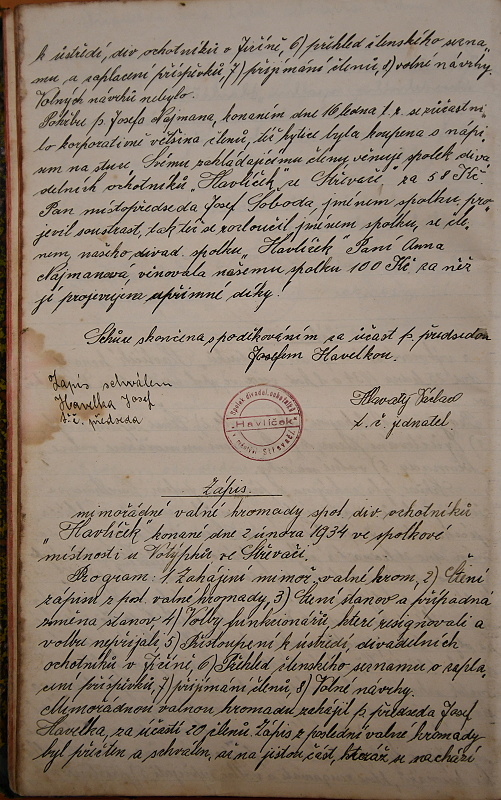 k ústředí, div ochotníků v Jičíně, 6) přehled členského sezna-
mu a zaplacení příspěvků, 7) přijímání členů, 8) volné návrhy.
Volných návrhů nebylo.
Pohřbu p. Josefa Najmana, konaném dne 16 ledna t. r. se zúčastni-
lo korporativně většina členů, též kytice byla koupena s nápi
sem na stuze. Svému zakládajícímu členu věnuje spolek diva
delních ochotníků „Havlíček" ve Střevači" za 58 Kč.
Pan místopředseda Josef Sloboda, jménem spolku, pro
jevil soustrast, též se rozloučil jménem spolku, se čle-
nem, našeho divad. spolku „Havlíček" Paní Anna
Najmanová, věnovala našemu spolku 100 Kč za něž
jí projevujem upřímné díky.
Schůze skončena s poděkováním za účast p. předsedou
Josefem Havelkou.
Zápis schválen
Havelka Josef
t. č. předseda
Spolek divadel. ochotníků
„Havlíček"
Střevači
Hlavatý Václav
t. č. jednatel.
Zápis.
mimořádné valné hromady spol. div. ochotníků
„Havlíček" konané dne 2 února 1934 ve spolkové
místnosti u ve Střevači.
Program: 1. Zahájení mimoř. valné hrom, 2) Čtení
zápisu z posl. valné hromady, 3) Čtení stanov a případná
změna stanov, 4) Volby funkcionářů, kteří resignovali a
volbu nepřijali, 5) Přistoupení k ústředí, divadelních
ochotníků v Jičíně, 6) Přehled členského seznamu a zapla-
cení příspěvků, 7) přijímání členů, 8) Volné návrhy.
Mimořádnou valnou hromadu zahájil p. předseda Josef
Havelka, za účasti 20 členů. Zápis z poslední valné hromady
byl přečten a schválen, až na jistou část, kteráž se nachází